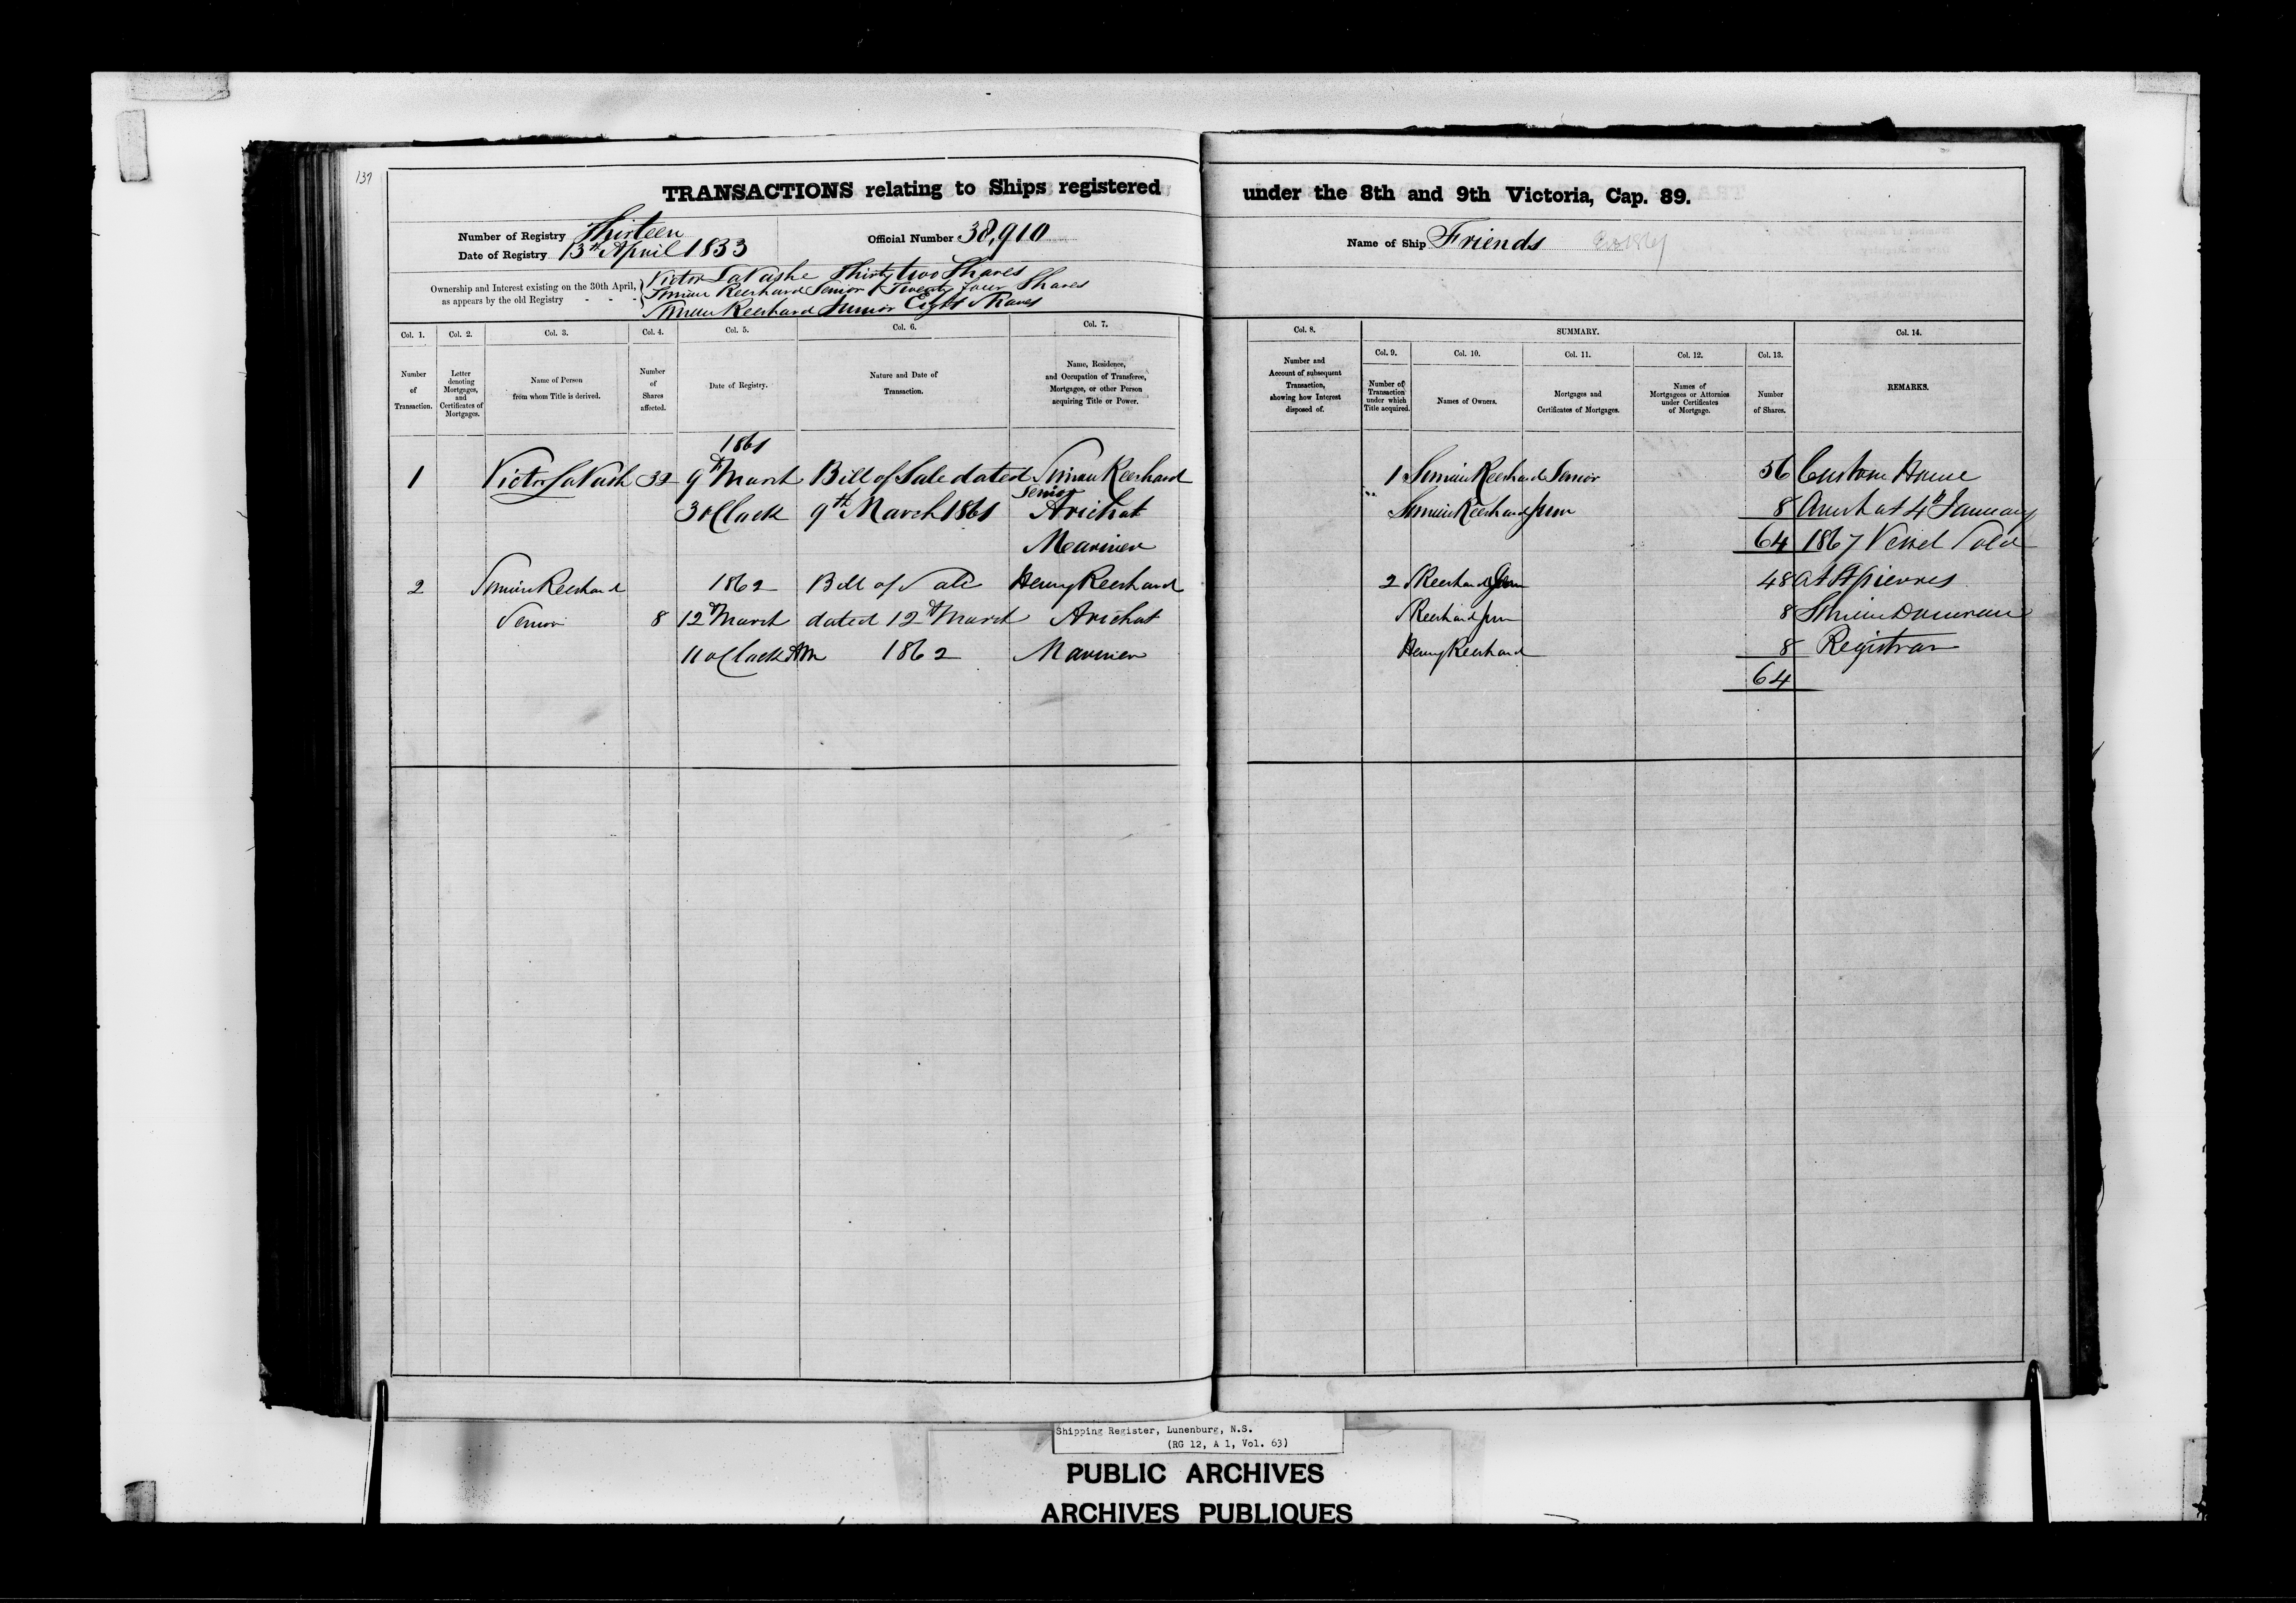 137
TRANSACTIONS relating to Ships registered under the 8th and 9th Victoria, Cap. 89.
Number of Registry Thirteen
Date of Registry 13th April 1833
Official Number 38,910
Name of Ship Friends
Ownership and Interest existing on the 30th April,
as appears by the old Registry - - -
Victor LaVashe Thirty two Shares
Simeon Reerhard Senior Twenty four Shares
Simeon Reerhard Junior Eight Shares
Col. 1. Col. 2. Col. 3. Col. 4. Col. 5. Col. 6. Col. 7.
Number of Transaction.
Letter denoting Mortgages, and Certificates of Mortgages.
Name of Person from whom Title is derived.
Number of Shares affected.
Date of Registry.
Nature and Date of Transaction.
Name, Residence, and Occupation of Transferee, Mortgagee, or other Person acquiring Title or Power.
Col. 8. SUMMARY. Col. 14.
Col. 9. Col. 10. Col. 11. Col. 12. Col. 13.
Number and Account of subsequent Transaction, showing how Interest disposed of.
Number of Transaction under which Title acquired.
Names of Owners.
Mortgages and Certificates of Mortgages.
Names of Mortgagees or Attornies under Certificates of Mortgage.
Number of Shares.
REMARKS.
1861
1 Victor LaVash 32 9th March Bill of Sale dated Simeon Reerhard
Senior
3 oClock 9th March 1861 Arichat
Mariner
2 Simeon Reerhard 1862 Bill of Sale Henry Reerhard
Senior 8 12th March dated 12th March Arichat
11 oClock AM 1862 Mariner
1 Simeon Reerhard Senior 56 Custom House
" Simeon Reerhard Junr 8 Arichat 4th January
64 1867 Vessel Sold
2 S Reerhard Senr 48 at St Pierres
S Reerhard Junr 8
Henry Reerhard 8 Registrar
64
Shipping Register, Lunenburg, N.S.
(RG 12, A 1, Vol. 63)
PUBLIC ARCHIVES
ARCHIVES PUBLIQUES